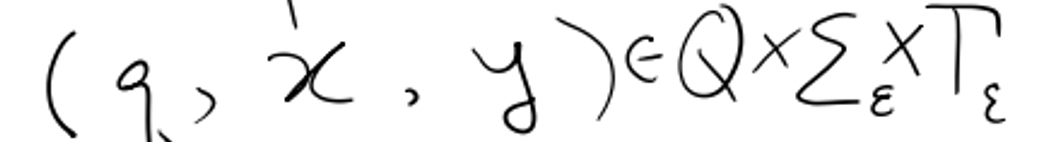 (q, x, y) ∈ Q × Σ_ε × Γ_ε